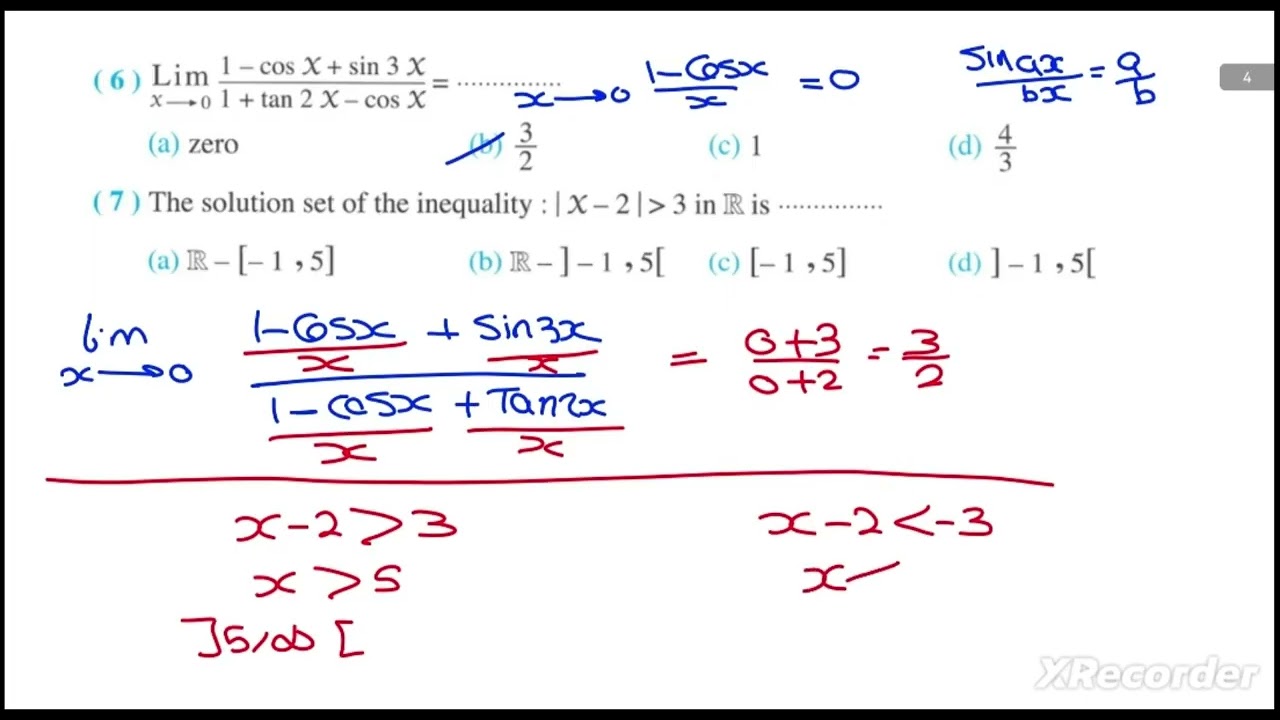 (6) Lim x→0 (1 − cos X + sin 3 X)/(1 + tan 2 X − cos X) = ...............
x→0 (1−Cosx)/x = 0
Sin ax/bx = a/b
4
(a) zero (b) 3/2 (c) 1 (d) 4/3
(7) The solution set of the inequality : | X − 2 | > 3 in ℝ is ...............
(a) ℝ − [− 1 , 5] (b) ℝ − ] − 1 , 5[ (c) [− 1 , 5] (d) ] − 1 , 5[
Lim x→0 ((1−Cosx)/x + Sin3x/x)/((1−cosx)/x + Tan2x/x) = (0+3)/(0+2) = 3/2
x−2 > 3 x−2 < −3
x > 5 x
]5,∞[
XRecorder